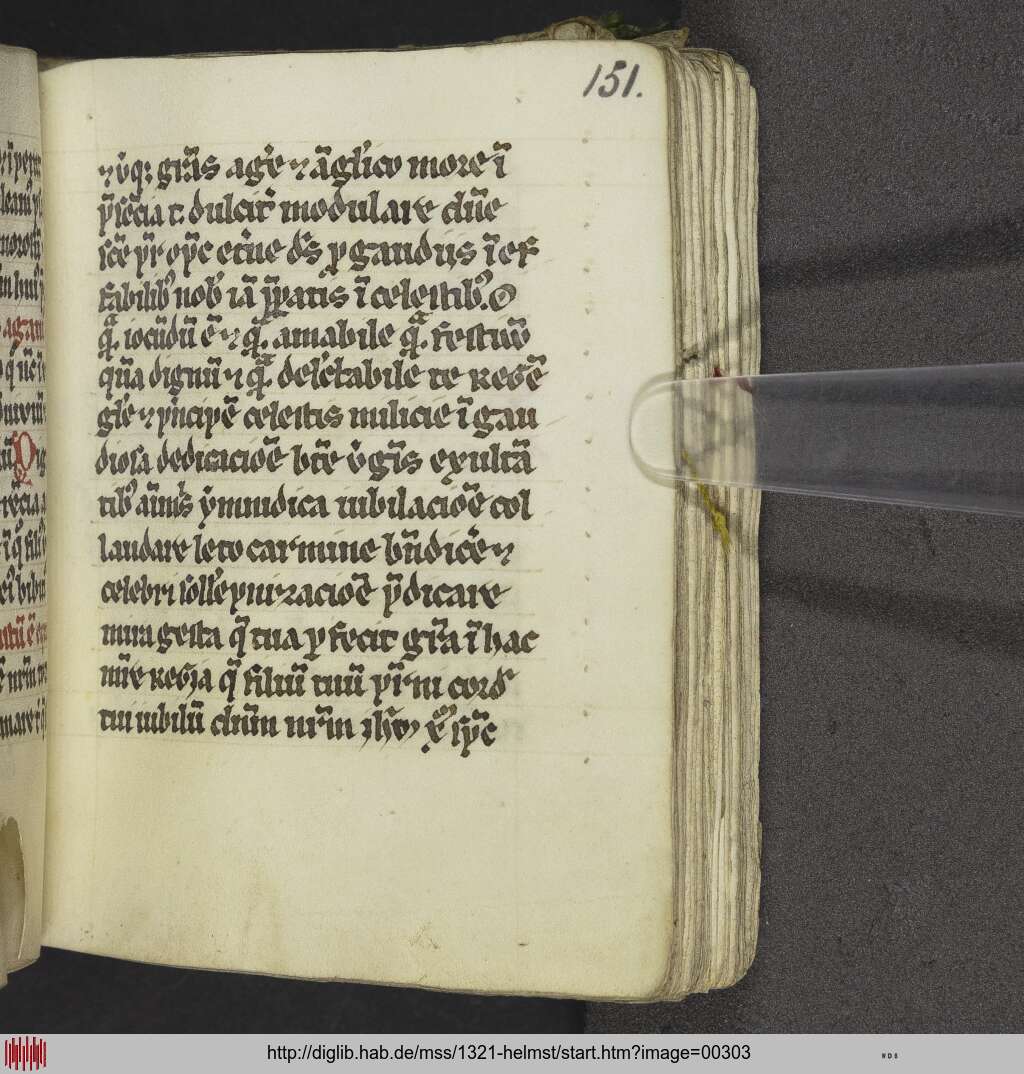 151.
⁊ vb̄q; gr̄as agē ⁊ āgl'ico more ī
p̄sēcia t. dulcit᷑ modulare dn̄e
sc̄e pr̄ op̄c et'ne ds̄ p gaudijs īef
fabilib' nob' iā p̄paratis ī celestib'. O
q̄ᷓ. iocūdū ē ⁊ q̄ᷓ. amabile q̄ᷓ. festiuū
qn̄a dignū ⁊ q̄ᷓ. delc̄tabile te regē
gl'e ⁊ p'ncipē celestis milicie ī gau
diosa dedicaciōe bt̄e v'gīs exultā
tib' aīmis ymnidica iubilaciōe col
laudare leto carmine bn̄dicē ⁊
celebri sollēpnizaciōe p̄dicare
mira gesta q̄ tua pfecit gr̄a ī hac
mr̄e regia q̄ filiū tuū pr̄ni cord'
tui iubilū dn̄m nr̄m ihm̄ xp̄m sp̄c
http://diglib.hab.de/mss/1321-helmst/start.htm?image=00303